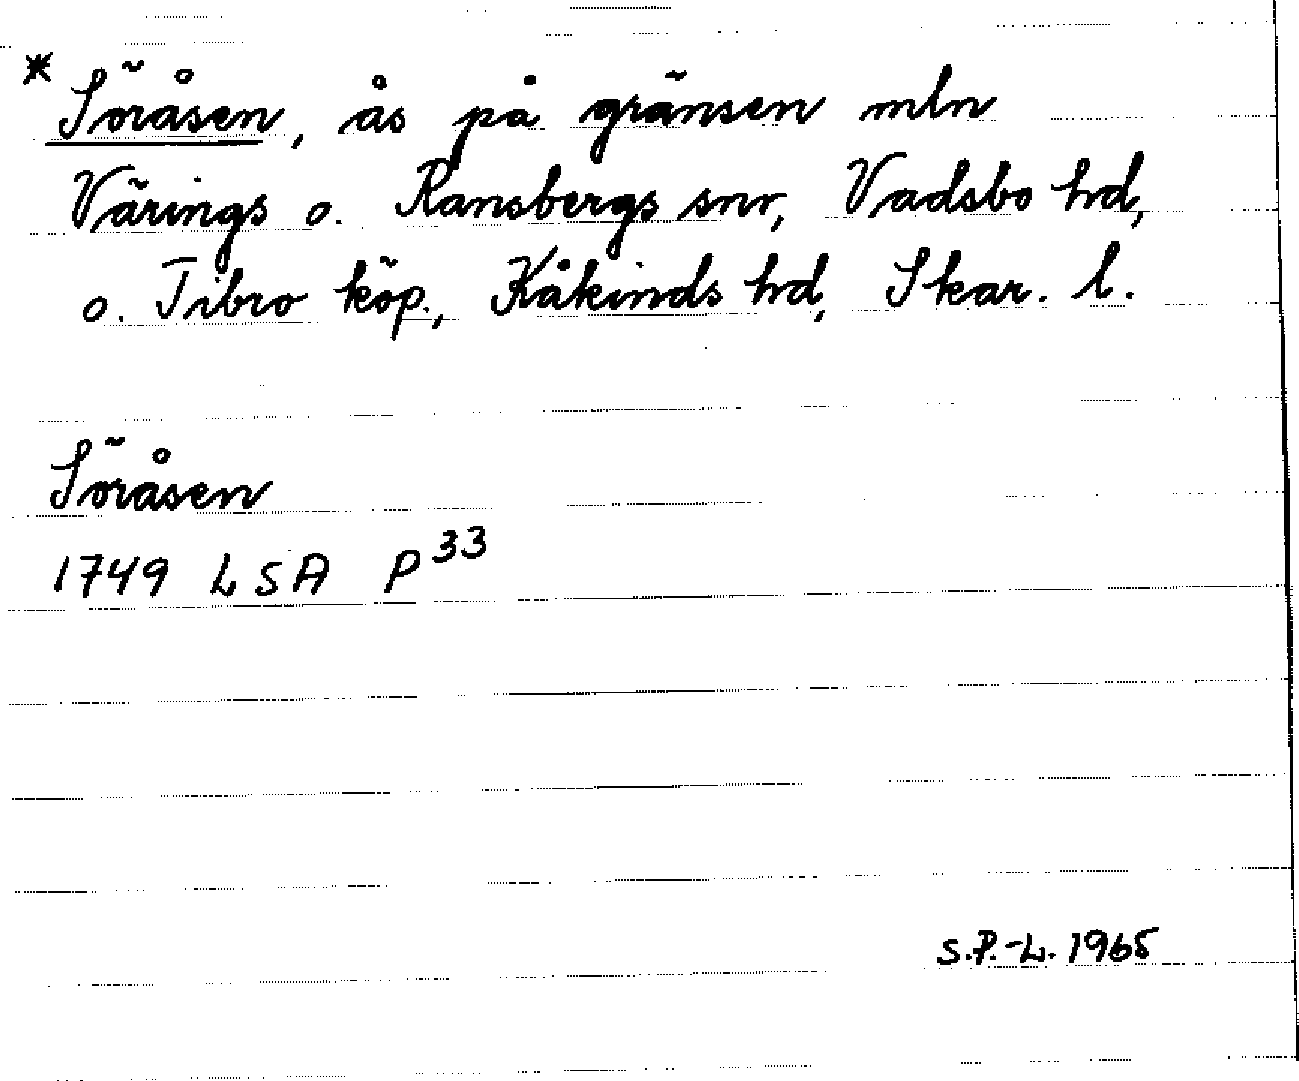 * Söråsen, ås på gränsen mln
Värings o. Ransbergs snr, Vadsbo hd,
o. Tibro köp., Kåkinds hd, Skar. l.
Söråsen
1749 LSA P33
S.P.-L. 1965